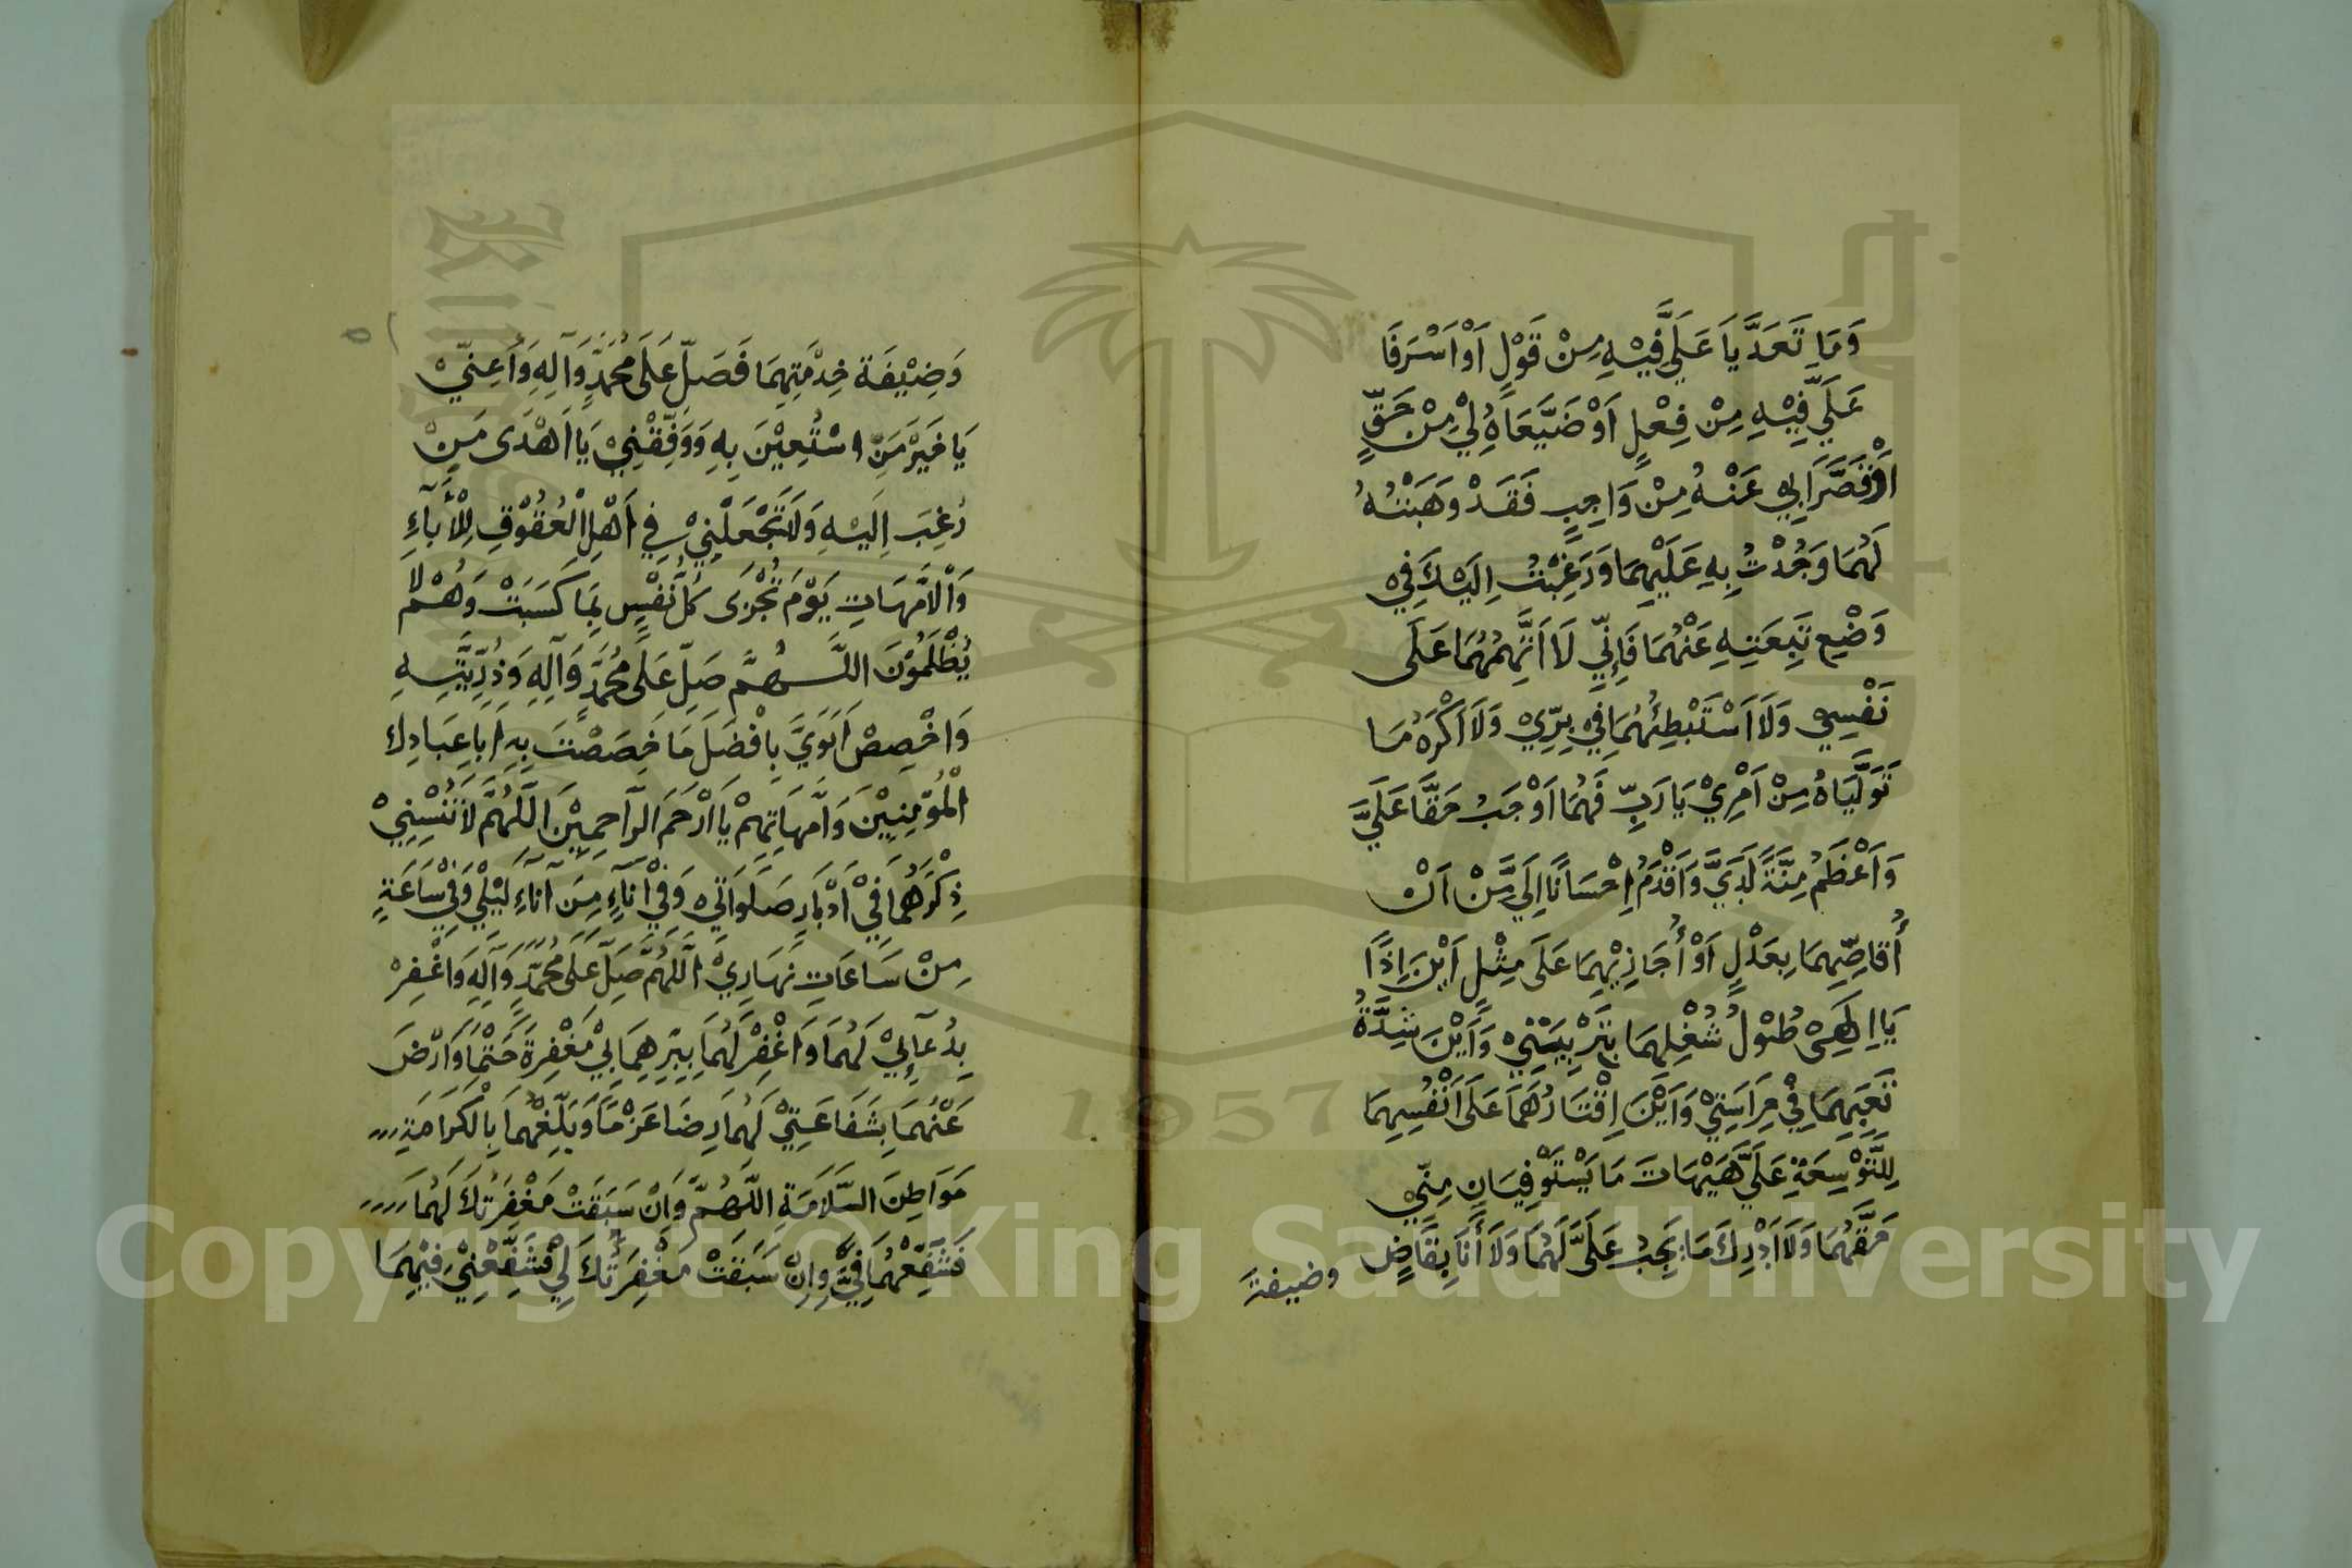 وَمَا تَعَدَّيَا عَلَيَّ فِيْهِ مِنْ قَوْلٍ اَوْ اَسْرَفَا
عَلَيَّ فِيْهِ مِنْ فِعْلٍ اَوْ ضَيَّعَاهُ لِيْ مِنْ حَقٍّ
اَوْ قَصَّرَا بِي عَنْهُ مِنْ وَاجِبٍ فَقَدْ وَهَبْتُهُ
لَهُمَا وَجُدْتُ بِهِ عَلَيْهِمَا وَرَغِبْتُ اِلَيْكَ فِيْ
وَضْعِ تَبِعَتِهِ عَنْهُمَا فَاِنِّي لَا اَتَّهِمُهُمَا عَلَى
نَفْسِيْ وَلَا اَسْتَبْطِئُهُمَا فِيْ بِرِّيْ وَلَا اَكْرَهُ مَا
تَوَلَّيَاهُ مِنْ اَمْرِيْ يَا رَبِّ فَهُمَا اَوْجَبُ حَقًّا عَلَيَّ
وَاَعْظَمُ مِنَّةً لَدَيَّ وَاَقْدَمُ اِحْسَانًا اِلَيَّ مِنْ اَنْ
أُقَاصِّهِمَا بِعَدْلٍ اَوْ أُجَازِيْهِمَا عَلَى مِثْلٍ اَيْنَ اِذًا
يَا اِلٰهِيْ طُوْلُ شُغْلِهِمَا بِتَرْبِيَتِيْ وَاَيْنَ شِدَّةُ
تَعَبِهِمَا فِيْ حِرَاسَتِيْ وَاَيْنَ اِقْتَارُهُمَا عَلَى اَنْفُسِهِمَا
لِلتَّوْسِعَةِ عَلَيَّ هَيْهَاتَ مَا يَسْتَوْفِيَانِ مِنِّيْ
حَقَّهُمَا وَلَا اَدْرِكَ مَا يَجِبُ عَلَيَّ لَهُمَا وَلَا أَنَا بِقَاضٍ
وضيفة
٥١
وَضِيْفَةَ خِدْمَتِهِمَا فَصَلِّ عَلَى مُحَمَّدٍ وَآلِهِ وَاَعِنِّيْ
يَا خَيْرَ مَنِ اسْتُعِيْنَ بِهِ وَوَفِّقْنِيْ يَا اَهْدَى مَنْ
رُغِبَ اِلَيْهِ وَلَا تَجْعَلْنِيْ فِي اَهْلِ الْعُقُوْقِ لِلْأٓبَاءِ
وَالْاُمَّهَاتِ يَوْمَ تُجْزَى كُلُّ نَفْسٍ بِمَا كَسَبَتْ وَهُمْ لَا
يُظْلَمُوْنَ اللّٰهُمَّ صَلِّ عَلَى مُحَمَّدٍ وَآلِهِ وَذُرِّيَّتِهِ
وَاخْصِصْ اَبَوَيَّ بِاَفْضَلَ مَا خَصَصْتَ بِهِ اٰبَاءَ عِبَادِكَ
الْمُؤْمِنِيْنَ وَاُمَّهَاتِهِمْ يَا اَرْحَمَ الرَّاحِمِيْنَ اَللّٰهُمَّ لَا تُنْسِنِيْ
ذِكْرَهُمَا فِيْ اَدْبَارِ صَلَوَاتِيْ وَفِيْ اٰنَاءٍ مِنَ آنَاءِ لَيْلِيْ وَفِيْ سَاعَةٍ
مِنْ سَاعَاتِ نَهَارِيْ اَللّٰهُمَّ صَلِّ عَلَى مُحَمَّدٍ وَآلِهِ وَاغْفِرْ
بِدُعَآئِيْ لَهُمَا وَاغْفِرْ لَهُمَا بِبِرِّهِمَا لِيْ مَغْفِرَةً حَتْمًا وَارْضَ
عَنْهُمَا بِشَفَاعَتِيْ لَهُمَا رِضًا عَزْمًا وَبَلِّغْهُمَا بِالْكَرَامَةِ
مَوَاطِنَ السَّلَامَةِ اللّٰهُمَّ وَاِنْ سَبَقَتْ مَغْفِرَتُكَ لَهُمَا
فَشَفِّعْهُمَا فِيَّ وَاِنْ سَبَقَتْ مَغْفِرَتُكَ لِيْ فَشَفِّعْنِيْ فِيْهِمَا
1957
Copyright © King Saud University